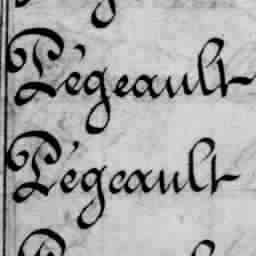 Pégeault
Pégeault